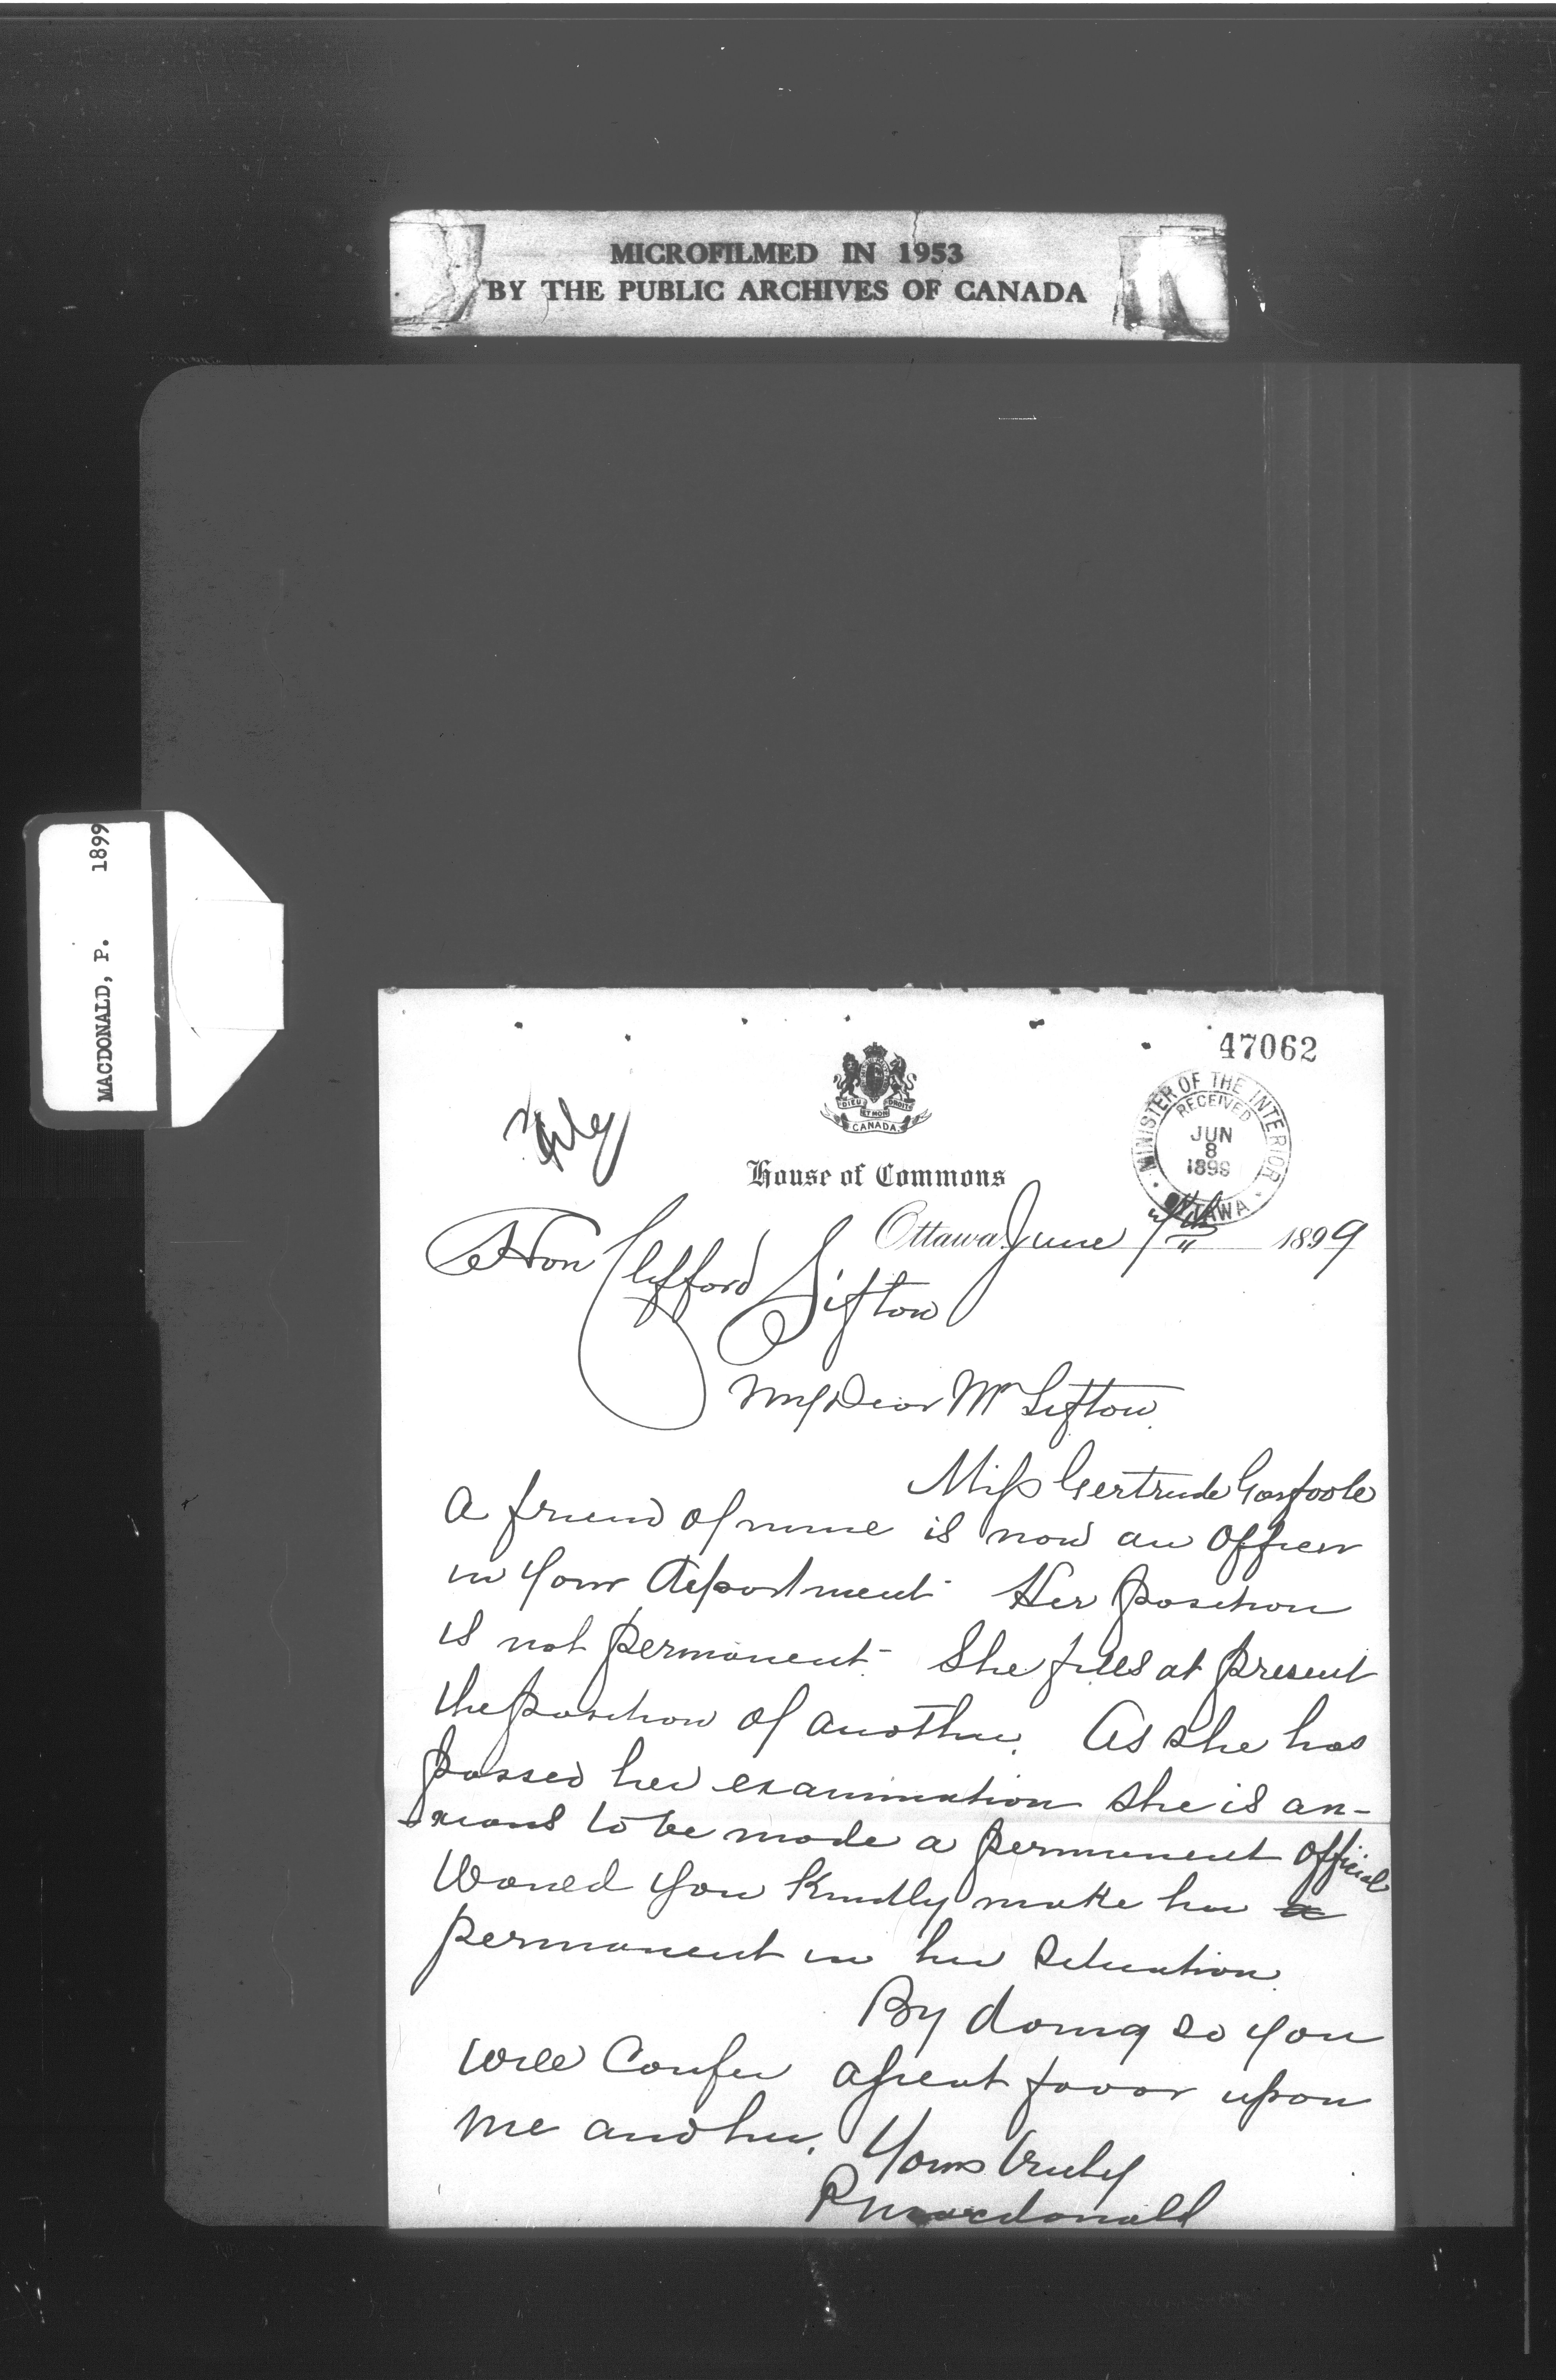 MICROFILMED IN 1953
BY THE PUBLIC ARCHIVES OF CANADA
MACDONALD, P. 1899
47062
MINISTER OF THE INTERIOR
RECEIVED
JUN
8
1899
OTTAWA
DIEU ET MON DROIT
CANADA
House of Commons
Ottawa June 7th 1899
Hon Clifford Sifton
My Dear Mr Sifton
Miss Gertrude
a friend of mine is now an officer
in your department. Her position
is not permanent. She fills at present
the position of another. As she has
passed her examination she is an-
xious to be made a permanent official
Would you kindly make her a
permanent in her situation.
By doing so you
will confer a great favor upon
me and her. Yours truly
P Macdonald